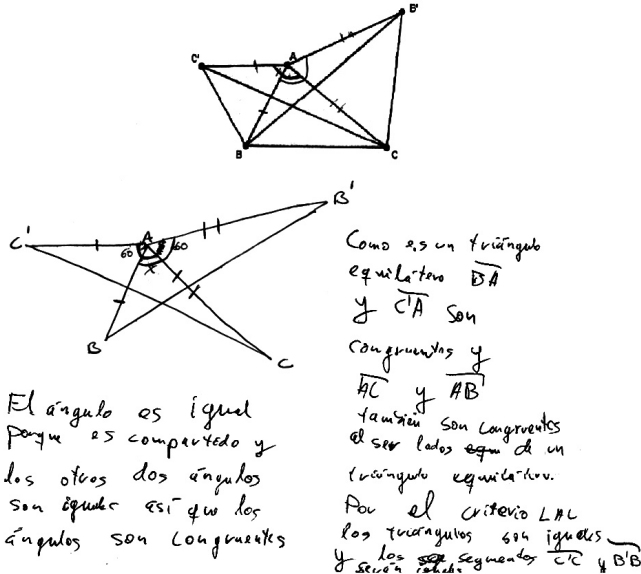 B'
C'
A
B
C
B'
A
C'
60
60
x
B
C
El ángulo es igual
porque es compartido y
los otros dos ángulos
son iguales así que los
ángulos son congruentes
Como es un triángulo
equilátero BA
y C'A son
congruentes y
AC y AB'
también son congruentes
al ser lados de un
triángulo equilátero.
Por el criterio LAL
los triángulos son iguales
y los segmentos C'C y B'B
serán iguales